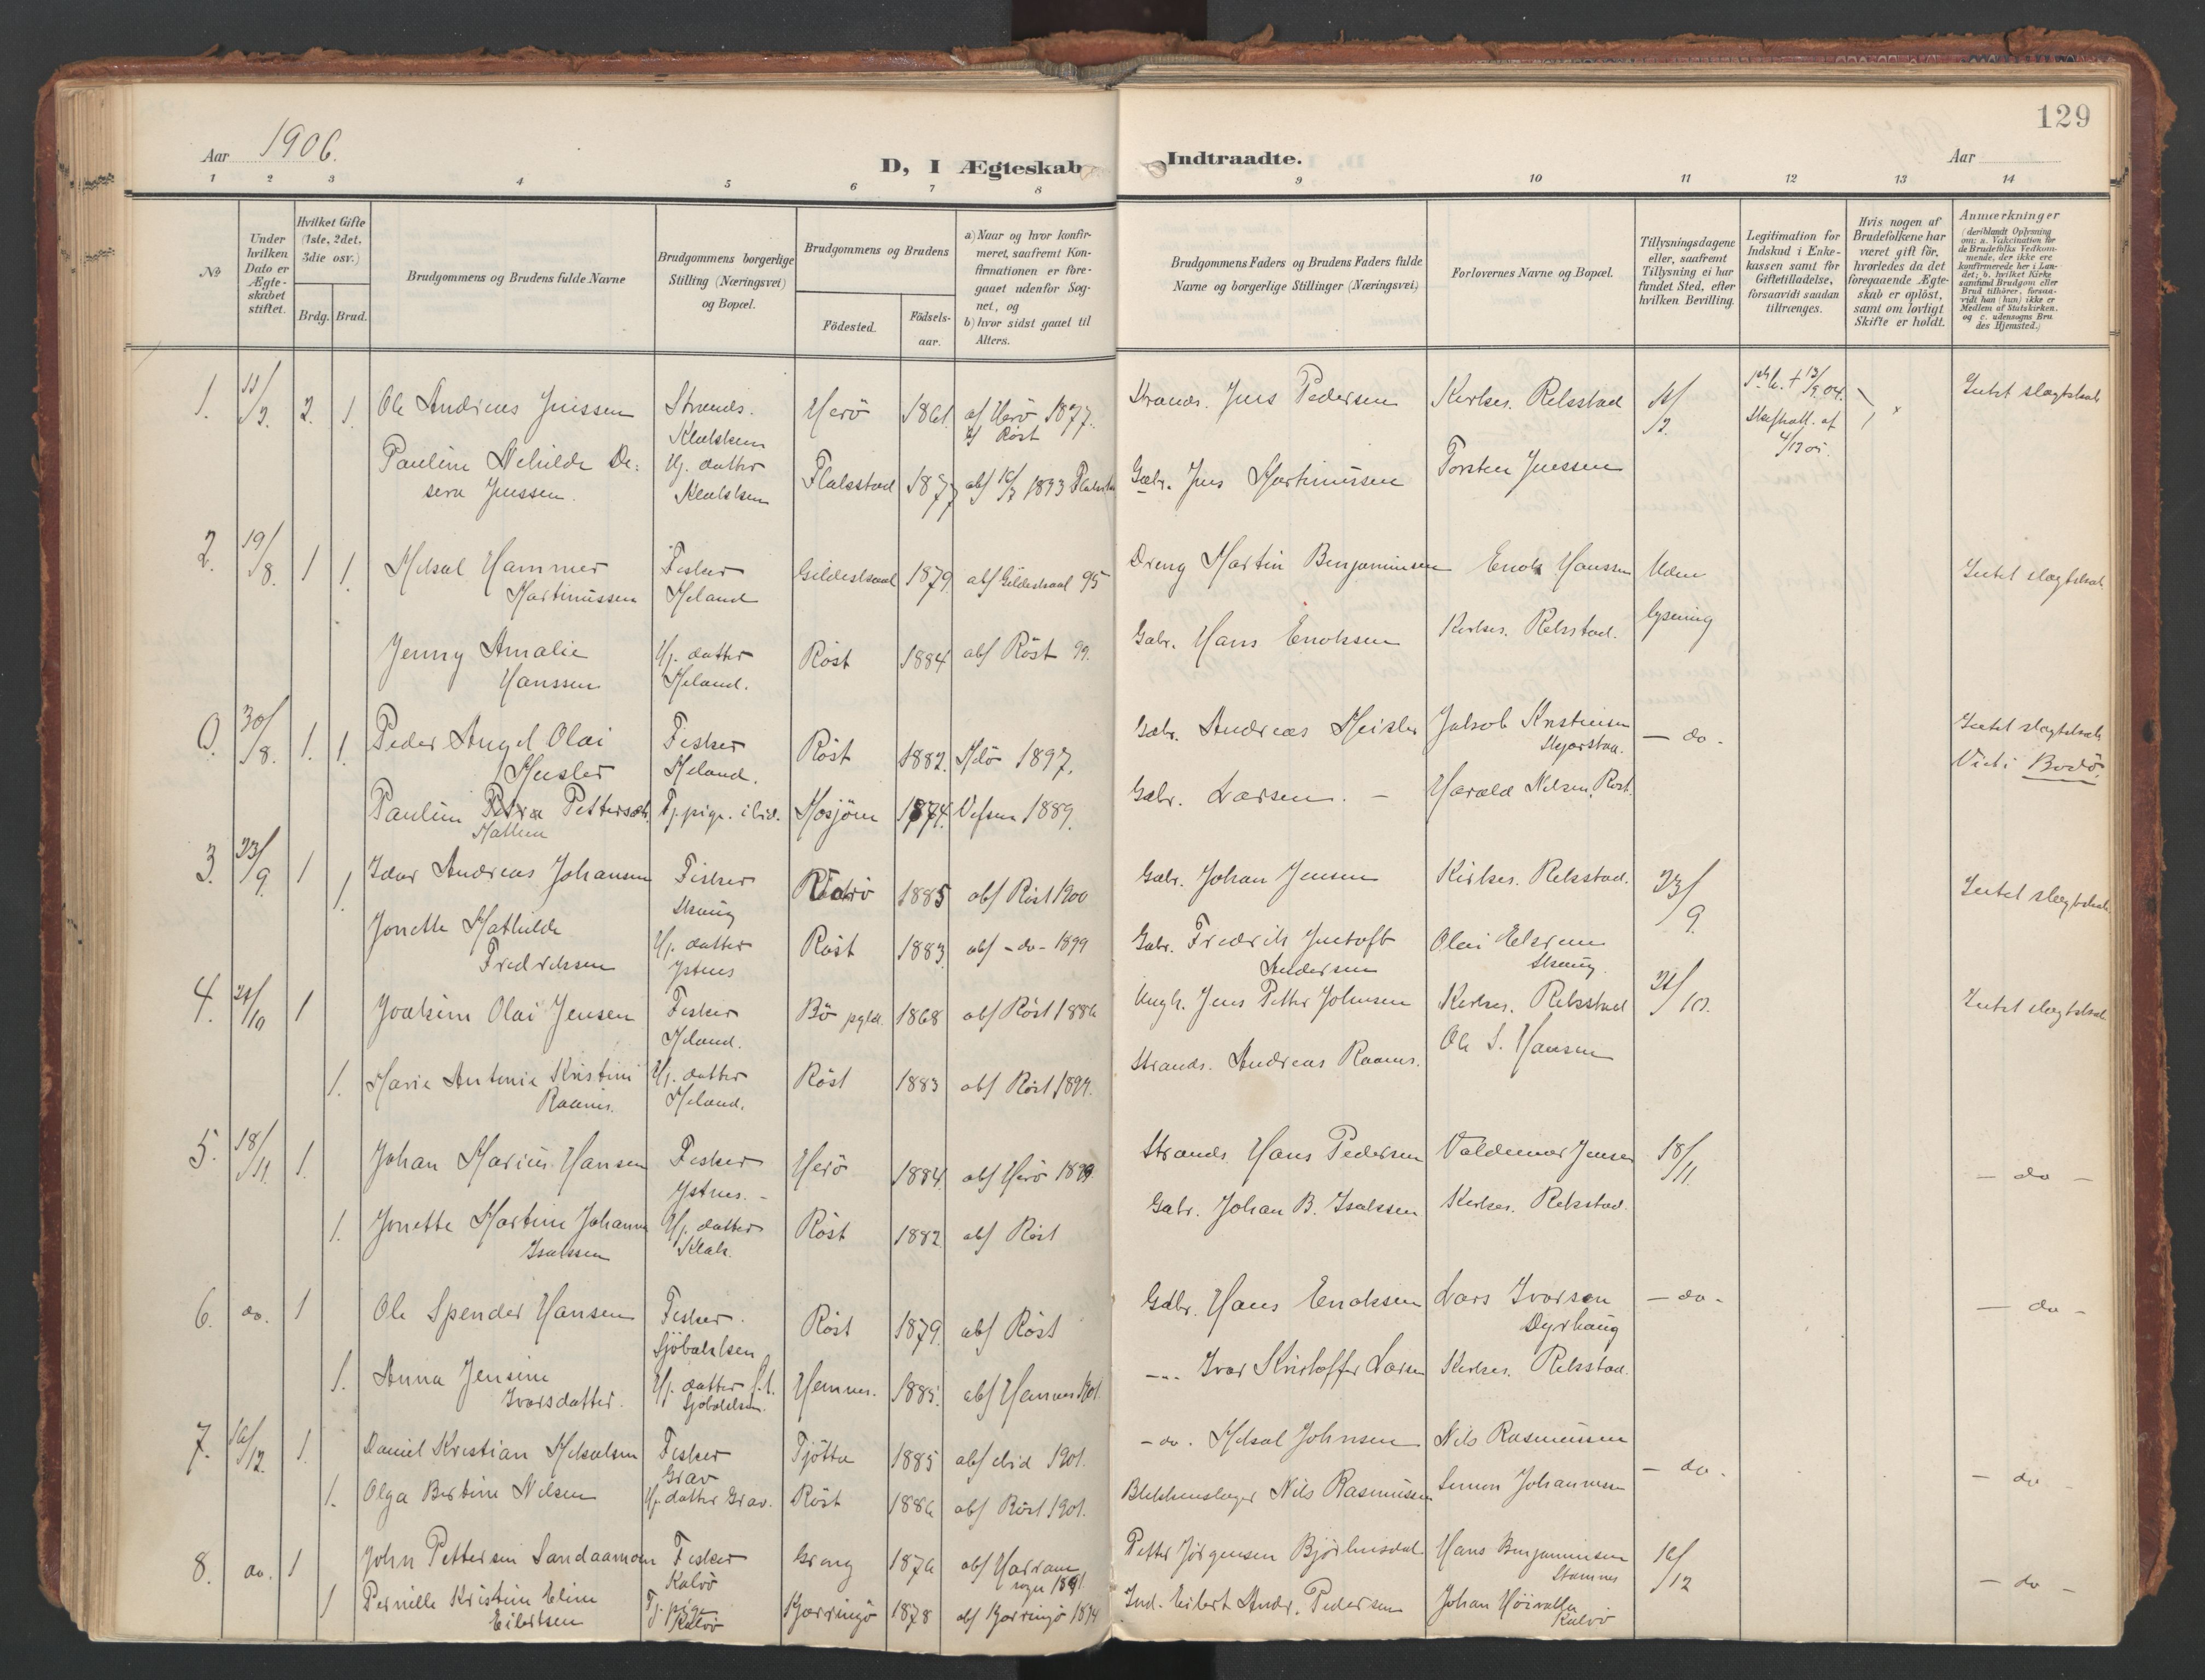 129
Aar 1906.
D, I Ægteskab Indtraadte.
Aar
1 2 3 4 5 6 7 8 9 10 11 12 13 14
No
Under hvilken Dato er Ægteskabet stiftet.
Hvilket Gifte (1ste, 2det, 3die osv.)
Brdg. Brud.
Brudgommens og Brudens fulde Navne
Brudgommens borgerlige Stilling (Næringsvei) og Bopæl.
Brudgommens og Brudens
Födested.
Födselsaar.
a) Naar og hvor konfirmeret, saafremt Konfirmationen er foregaaet udenfor Sognet, og
b) hvor sidst gaaet til Alters.
Brudgommens Faders og Brudens Faders fulde Navne og borgerlige Stillinger (Næringsvei)
Forlovernes Navne og Bopæl.
Tillysningsdagene eller, saafremt Tillysning ei har fundet Sted, efter hvilken Bevilling.
Legitimation for Indskud i Enkekassen samt for Giftetilladelse, forsaavidt saadan tiltrænges.
Hvis nogen af Brudefolkene har været gift för, hvorledes da det foregaaende Ægteskab er oplöst, samt om lovligt Skifte er holdt.
Anmærkninger (deriblandt Oplysning om: a. Vakcination for de Brudefolks Vedkommende, der ikke ere konfirmerede her i Landet; b. hvilket Kirkesamfund Brudgom eller Brud tilhörer, forsaavidt han (hun) ikke er Medlem af Statskirken, og c. udensogns Brudes Hjemsted.)
1. 11/2. 2. 1. Ole Andreas Jenssen Strands. Klakken Herö 1861. a/ Herö 1877. b/ Röst Strands. Jens Pedersen Kirkes. Rekstad 11/2. Intet slægtskab
Pauline Nehilde Desera Jenssen. Hj. datter Klakken Flakstad 1877 Gabr. Jens Martinussen Torsten Jenssen
2. 19/8. 1 1. Mikal Hammer Martinussen Fisker Heland Gildeskaal 1879. ab/ Gildeskaal 95 Dreng Martin Benjaminsen Enok Hanssen Uden lysning Intet slægtskab
Jenny Amalie Hanssen Hj. datter Heland. Röst 1884 ab/ Röst 99. Gabr. Hans Enoksen Kirkes. Rekstad.
0. 30/8. 1. 1. Peder Angel Olai Meisler Fisker Heland. Röst 1882. 1897. Gabr. Andreas Meisler Jakob Kristensen — do - Intet slægtskab
Viet i Bodö.
Pauline Petra Pettersdtr. Tj. pige ibid. Mosjöen 1874. Vefsen 1889. Gabr. Larsen. — Harald Nilsen, Röst.
3. 23/9. 1 1. Idar Andreas Johansen Fisker Skaug 1885 ab/ Röst 1900 Gabr. Johan Jensen Kirkes. Rekstad. 23/9. Intet slægtskab
Jonette Mathilde Fredriksen Hj. datter Ystnes Röst 1883. ab/ - do - 1899 Gabr. Fredrik Justoft Andersen Olai Skaug
4. 21/10 1 Joakim Olai Jensen Fisker Heland. Bö pgld. 1868 ab/ Röst 1886 Ungk. Jens Petter Johnsen Kirkes. Rekstad 21/10. Intet slægtskab
1. Marie Antonie Kristine Raanes. Hj. datter Heland. Röst 1883 ab/ Röst 1897. Strands. Andreas Raanes. Ole S. Hansen
5. 18/11. 1. Johan Marius Hansen Fisker Ystnes. - Herö 1884. ab/ Herö 1899. Strands. Hans Pedersen Valdemar Jensen 18/11. — do —
1. Jonette Martine Johanne Isaksen Hj. datter Klak. Röst 1882. ab/ Röst Gabr. Johan B. Isaksen Kirkes. Rekstad.
6. do. 1 Ole Spender Hansen Fisker. Sjöbakken Röst 1879. ab/ Röst Gabr. Hans Enoksen Lars Ivarsen Dyrhaug — do - — do -
1. Anna Jensine Ivarsdatter. Hj. datter Sjöbakken. Hemnes. 1885. ab/ Hemnes 1901. --- Ivar Kristoffer Larsen Kirkes. Rekstad.
7. 16/12. 1. Daniel Kristian Mikalsen Fisker Grav Tjötta 1885 ab/ ibid 1901. - do. Mikal Johnsen Nils Rasmussen — do - — do -
1. Olga Bertine Nilsen Hj. datter Grav. Röst 1886 ab/ Röst 1901. Blikkenslager Nils Rasmussen Simon Johannesen
8. do. 1 John Pettersen Sandaamoen Fisker Kalvö Grong 1876 ab/ Harram sogn 1891. Petter Jörgensen Hans Benjaminsen Stamnes 16/12 — do -
1 Pernille Kristine Eline Eilertsen Tj. pige Kalvö Kjerringö 1878 ab/ Kjerringö 1894 Ind. Eilert Andr. Pedersen Johan Kalvö